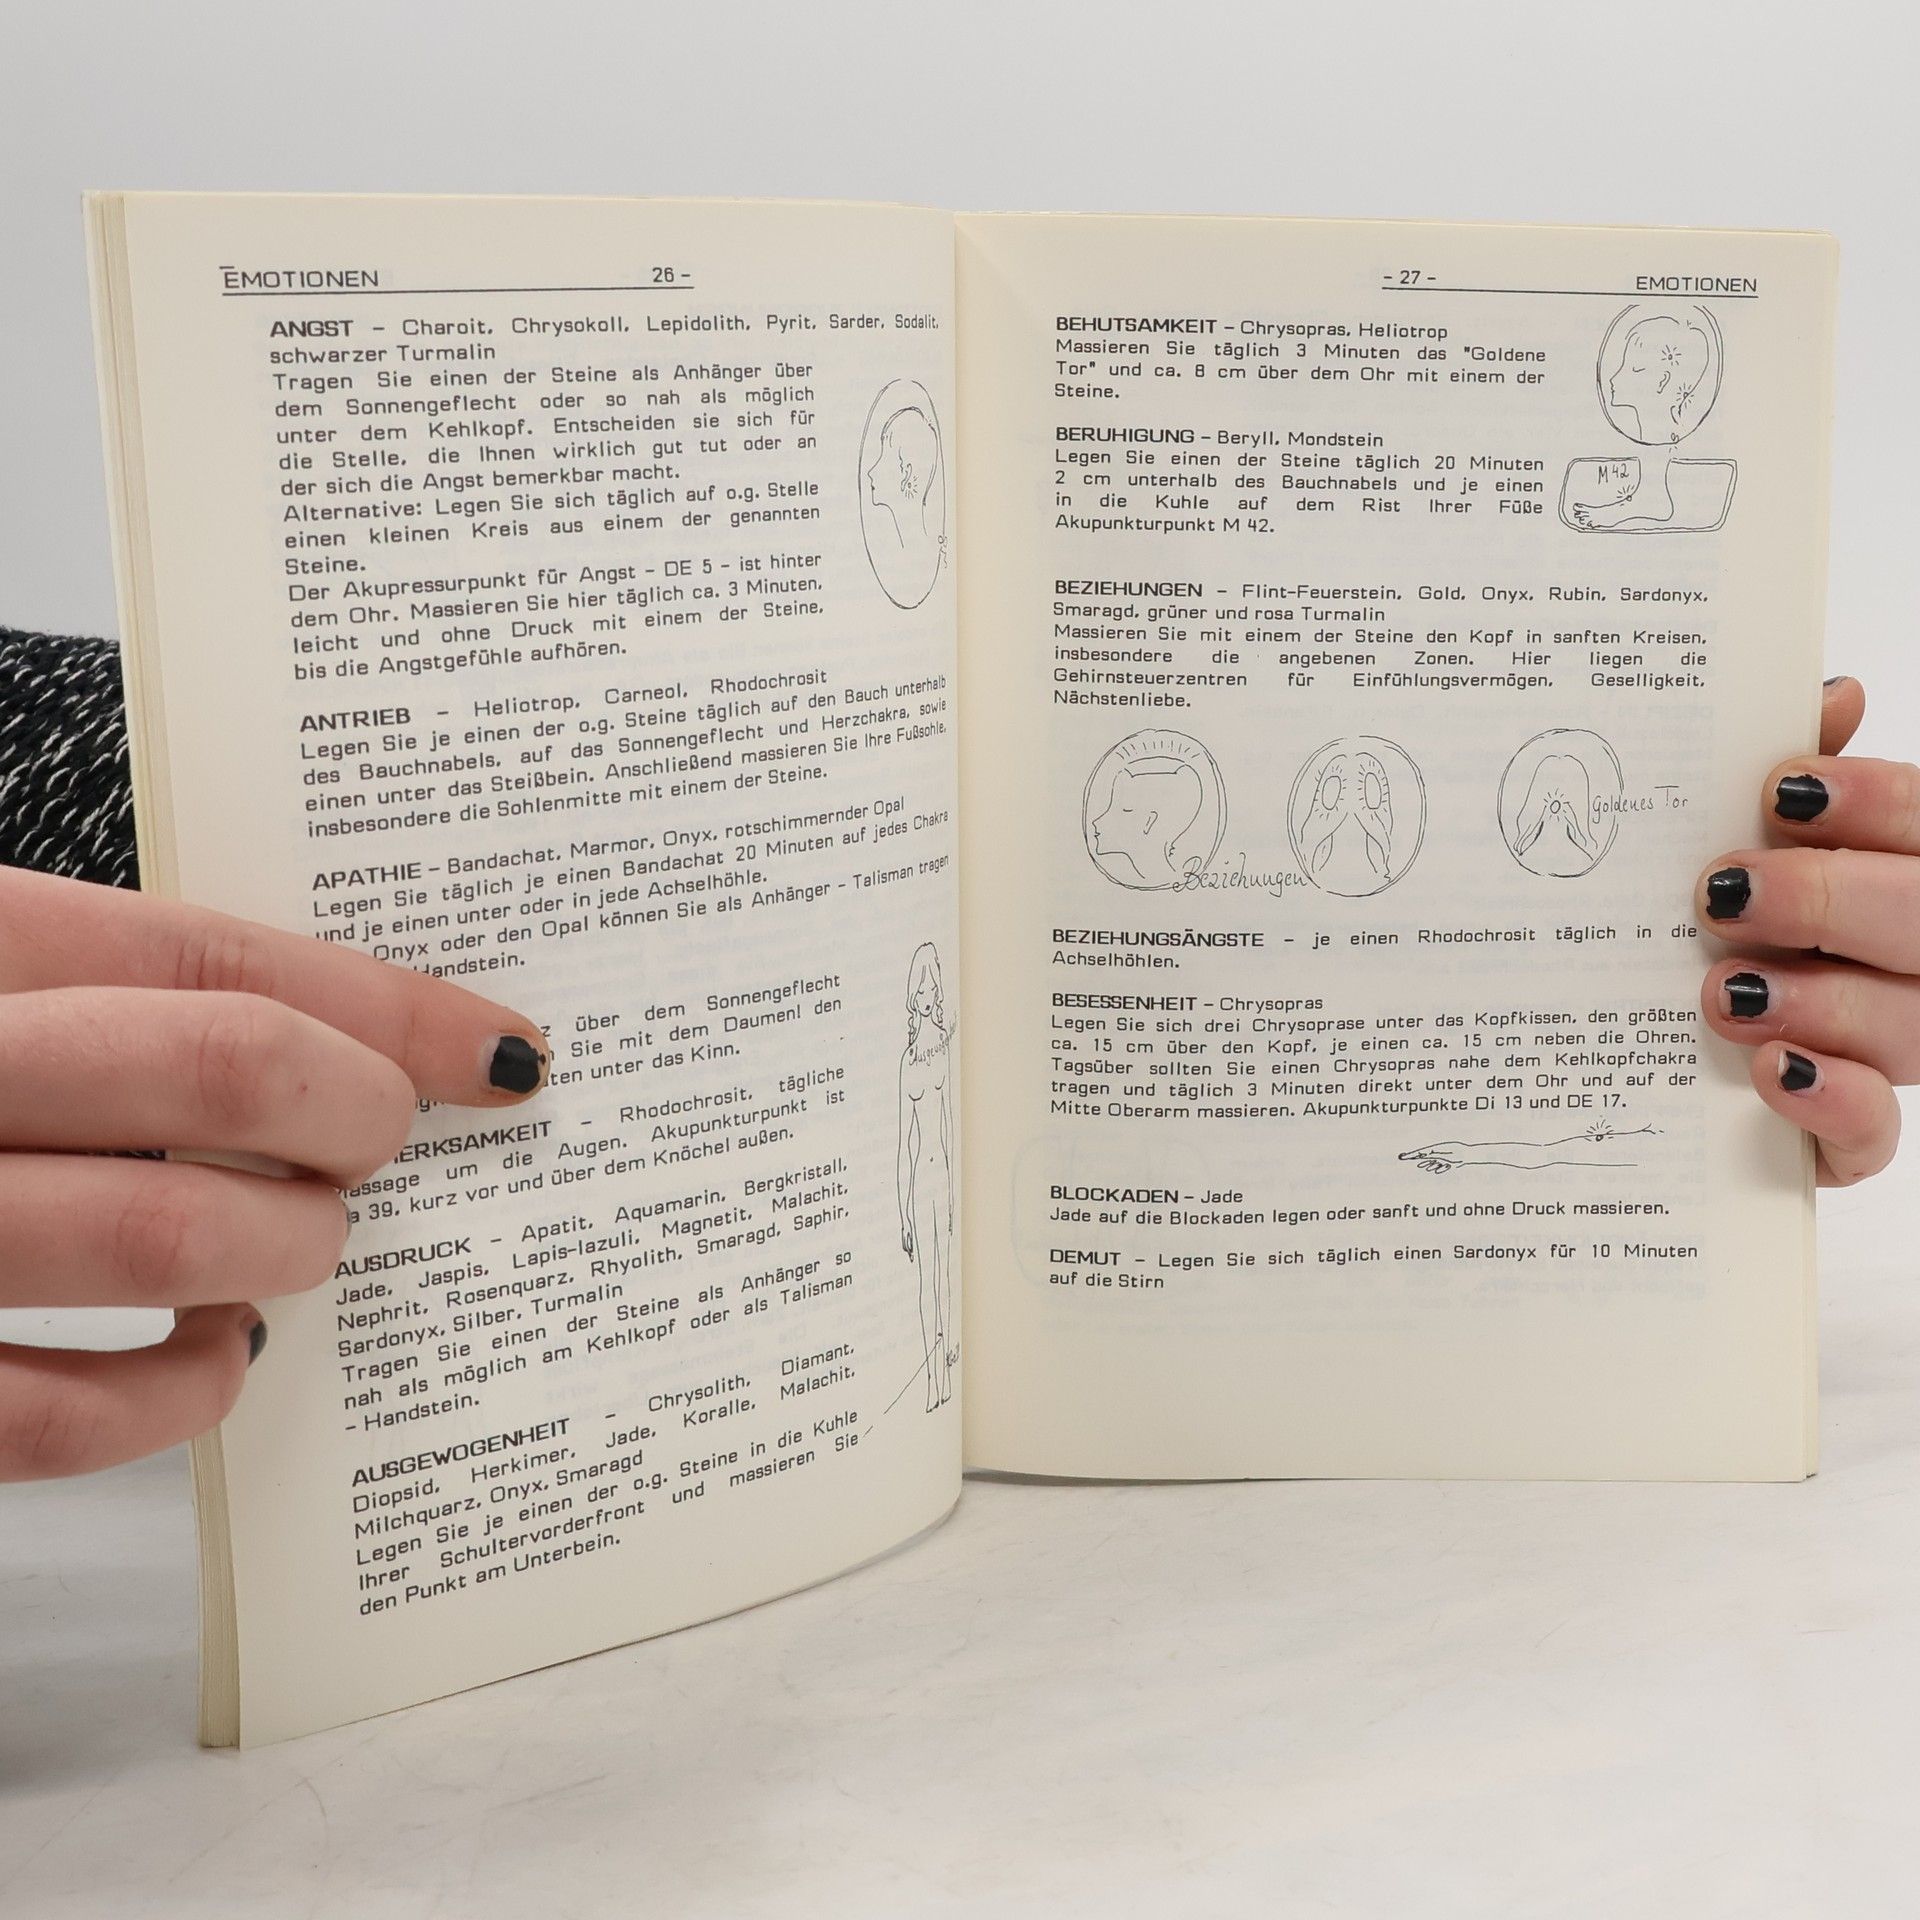 EMOTIONEN 26 -
ANGST - Charoit, Chrysokoll, Lepidolith, Pyrit, Sarder, Sodalit,
schwarzer Turmalin
Tragen Sie einen der Steine als Anhänger über
dem Sonnengeflecht oder so nah als möglich
unter dem Kehlkopf. Entscheiden sie sich für
die Stelle, die Ihnen wirklich gut tut oder an
der sich die Angst bemerkbar macht.
Alternative: Legen Sie sich täglich auf o.g. Stelle
einen kleinen Kreis aus einem der genannten
Steine.
Der Akupressurpunkt für Angst - DE 5 - ist hinter
dem Ohr. Massieren Sie hier täglich ca. 3 Minuten,
leicht und ohne Druck mit einem der Steine,
bis die Angstgefühle aufhören.
ANTRIEB - Heliotrop, Carneol, Rhodochrosit
Legen Sie je einen der o.g. Steine täglich auf den Bauch unterhalb
des Bauchnabels, auf das Sonnengeflecht und Herzchakra, sowie
einen unter das Steißbein. Anschließend massieren Sie Ihre Fußsohle,
insbesondere die Sohlenmitte mit einem der Steine.
APATHIE - Bandachat, Marmor, Onyx, rotschimmernder Opal
Legen Sie täglich je einen Bandachat 20 Minuten auf jedes Chakra
und je einen unter oder in jede Achselhöhle.
Onyx oder den Opal können Sie als Anhänger - Talisman tragen
Handstein.
über dem Sonnengeflecht
Sie mit dem Daumen! den
unter das Kinn.
ERKSAMKEIT - Rhodochrosit, tägliche
Massage um die Augen. Akupunkturpunkt ist
39, kurz vor und über dem Knöchel außen.
AUSDRUCK - Apatit, Aquamarin, Bergkristall,
Jade, Jaspis, Lapis-lazuli, Magnetit, Malachit,
Nephrit, Rosenquarz, Rhyolith, Smaragd, Saphir,
Sardonyx, Silber, Turmalin
Tragen Sie einen der Steine als Anhänger so
nah als möglich am Kehlkopf oder als Talisman
- Handstein.
AUSGEWOGENHEIT - Chrysolith, Diamant,
Diopsid, Herkimer, Jade, Koralle, Malachit,
Milchquarz, Onyx, Smaragd
Legen Sie je einen der o.g. Steine in die Kuhle
Ihrer Schultervorderfront und massieren Sie
den Punkt am Unterbein.
- 27 - EMOTIONEN
BEHUTSAMKEIT - Chrysopras, Heliotrop
Massieren Sie täglich 3 Minuten das "Goldene
Tor" und ca. 8 cm über dem Ohr mit einem der
Steine.
BERUHIGUNG - Beryll, Mondstein
Legen Sie einen der Steine täglich 20 Minuten
2 cm unterhalb des Bauchnabels und je einen
in die Kuhle auf dem Rist Ihrer Füße
Akupunkturpunkt M 42.
M 42
BEZIEHUNGEN - Flint-Feuerstein, Gold, Onyx, Rubin, Sardonyx,
Smaragd, grüner und rosa Turmalin
Massieren Sie mit einem der Steine den Kopf in sanften Kreisen,
insbesondere die angebenen Zonen. Hier liegen die
Gehirnsteuerzentren für Einfühlungsvermögen, Geselligkeit,
Nächstenliebe.
Goldenes Tor
Beziehungen
BEZIEHUNGSÄNGSTE - je einen Rhodochrosit täglich in die
Achselhöhlen.
BESESSENHEIT - Chrysopras
Legen Sie sich drei Chrysoprase unter das Kopfkissen, den größten
ca. 15 cm über den Kopf, je einen ca. 15 cm neben die Ohren.
Tagsüber sollten Sie einen Chrysopras nahe dem Kehlkopfchakra
tragen und täglich 3 Minuten direkt unter dem Ohr und auf der
Mitte Oberarm massieren. Akupunkturpunkte Di 13 und DE 17.
BLOCKADEN - Jade
Jade auf die Blockaden legen oder sanft und ohne Druck massieren.
DEMUT - Legen Sie sich täglich einen Sardonyx für 10 Minuten
auf die Stirn